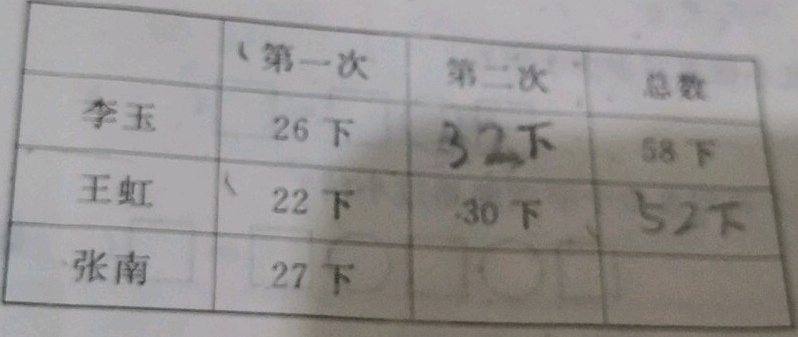 第一次 第二次 总数
李玉 26下 32下 58下
王虹 22下 30下 52下
张南 27下